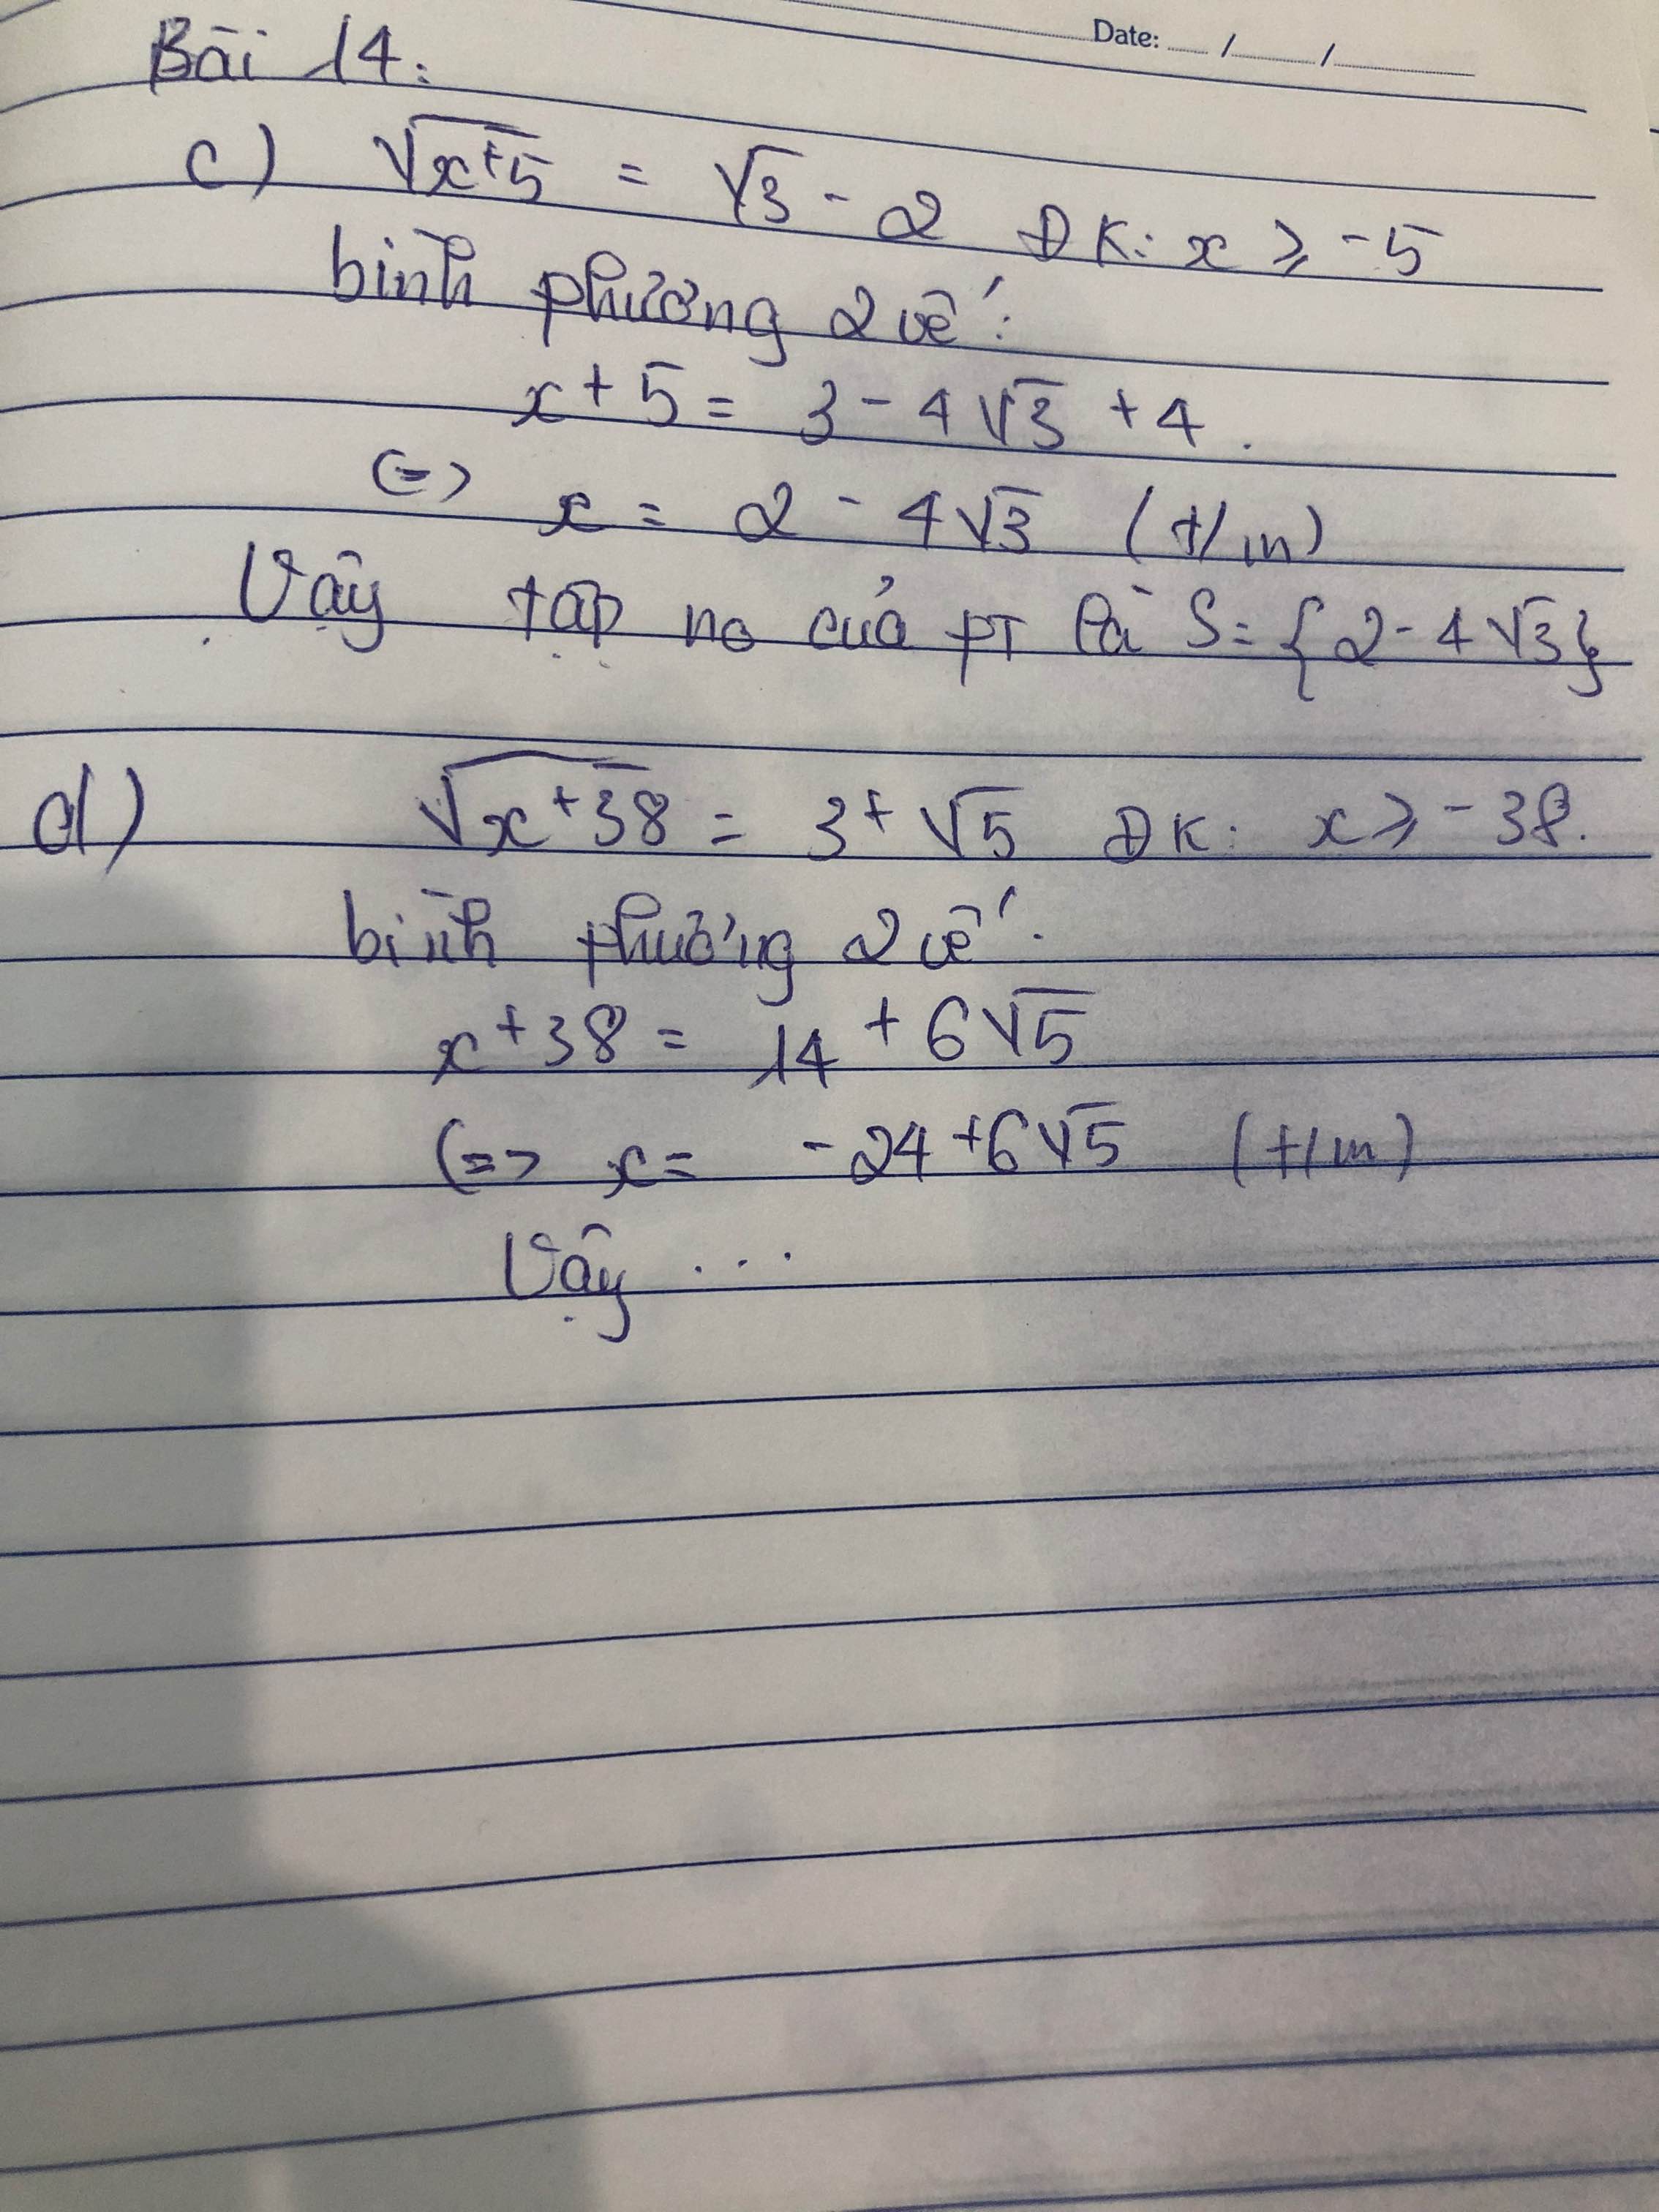 Date: / /
Bài 14:
c) √x+5 = √3 - 2 ĐK: x ≥ -5
bình phương 2 vế:
x + 5 = 3 - 4√3 + 4.
<=> x = 2 - 4√3 (t/m)
Vậy tập no của PT là S = {2 - 4√3}
d) √x+38 = 3 + √5 ĐK: x ≥ -38.
bình phương 2 vế:
x + 38 = 14 + 6√5
<=> x = -24 + 6√5 (t/m)
Vậy ...